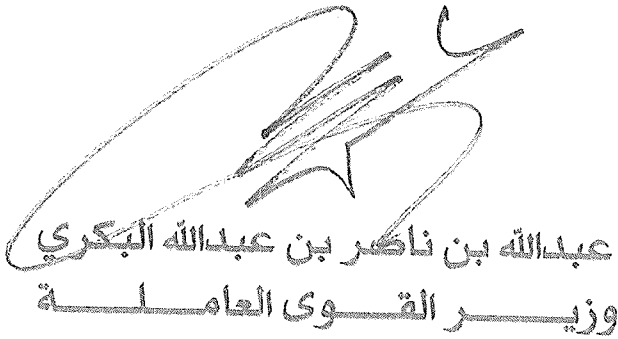 عبدالله بن ناصر بن عبدالله البكري
وزيــر القــوى العاملــة